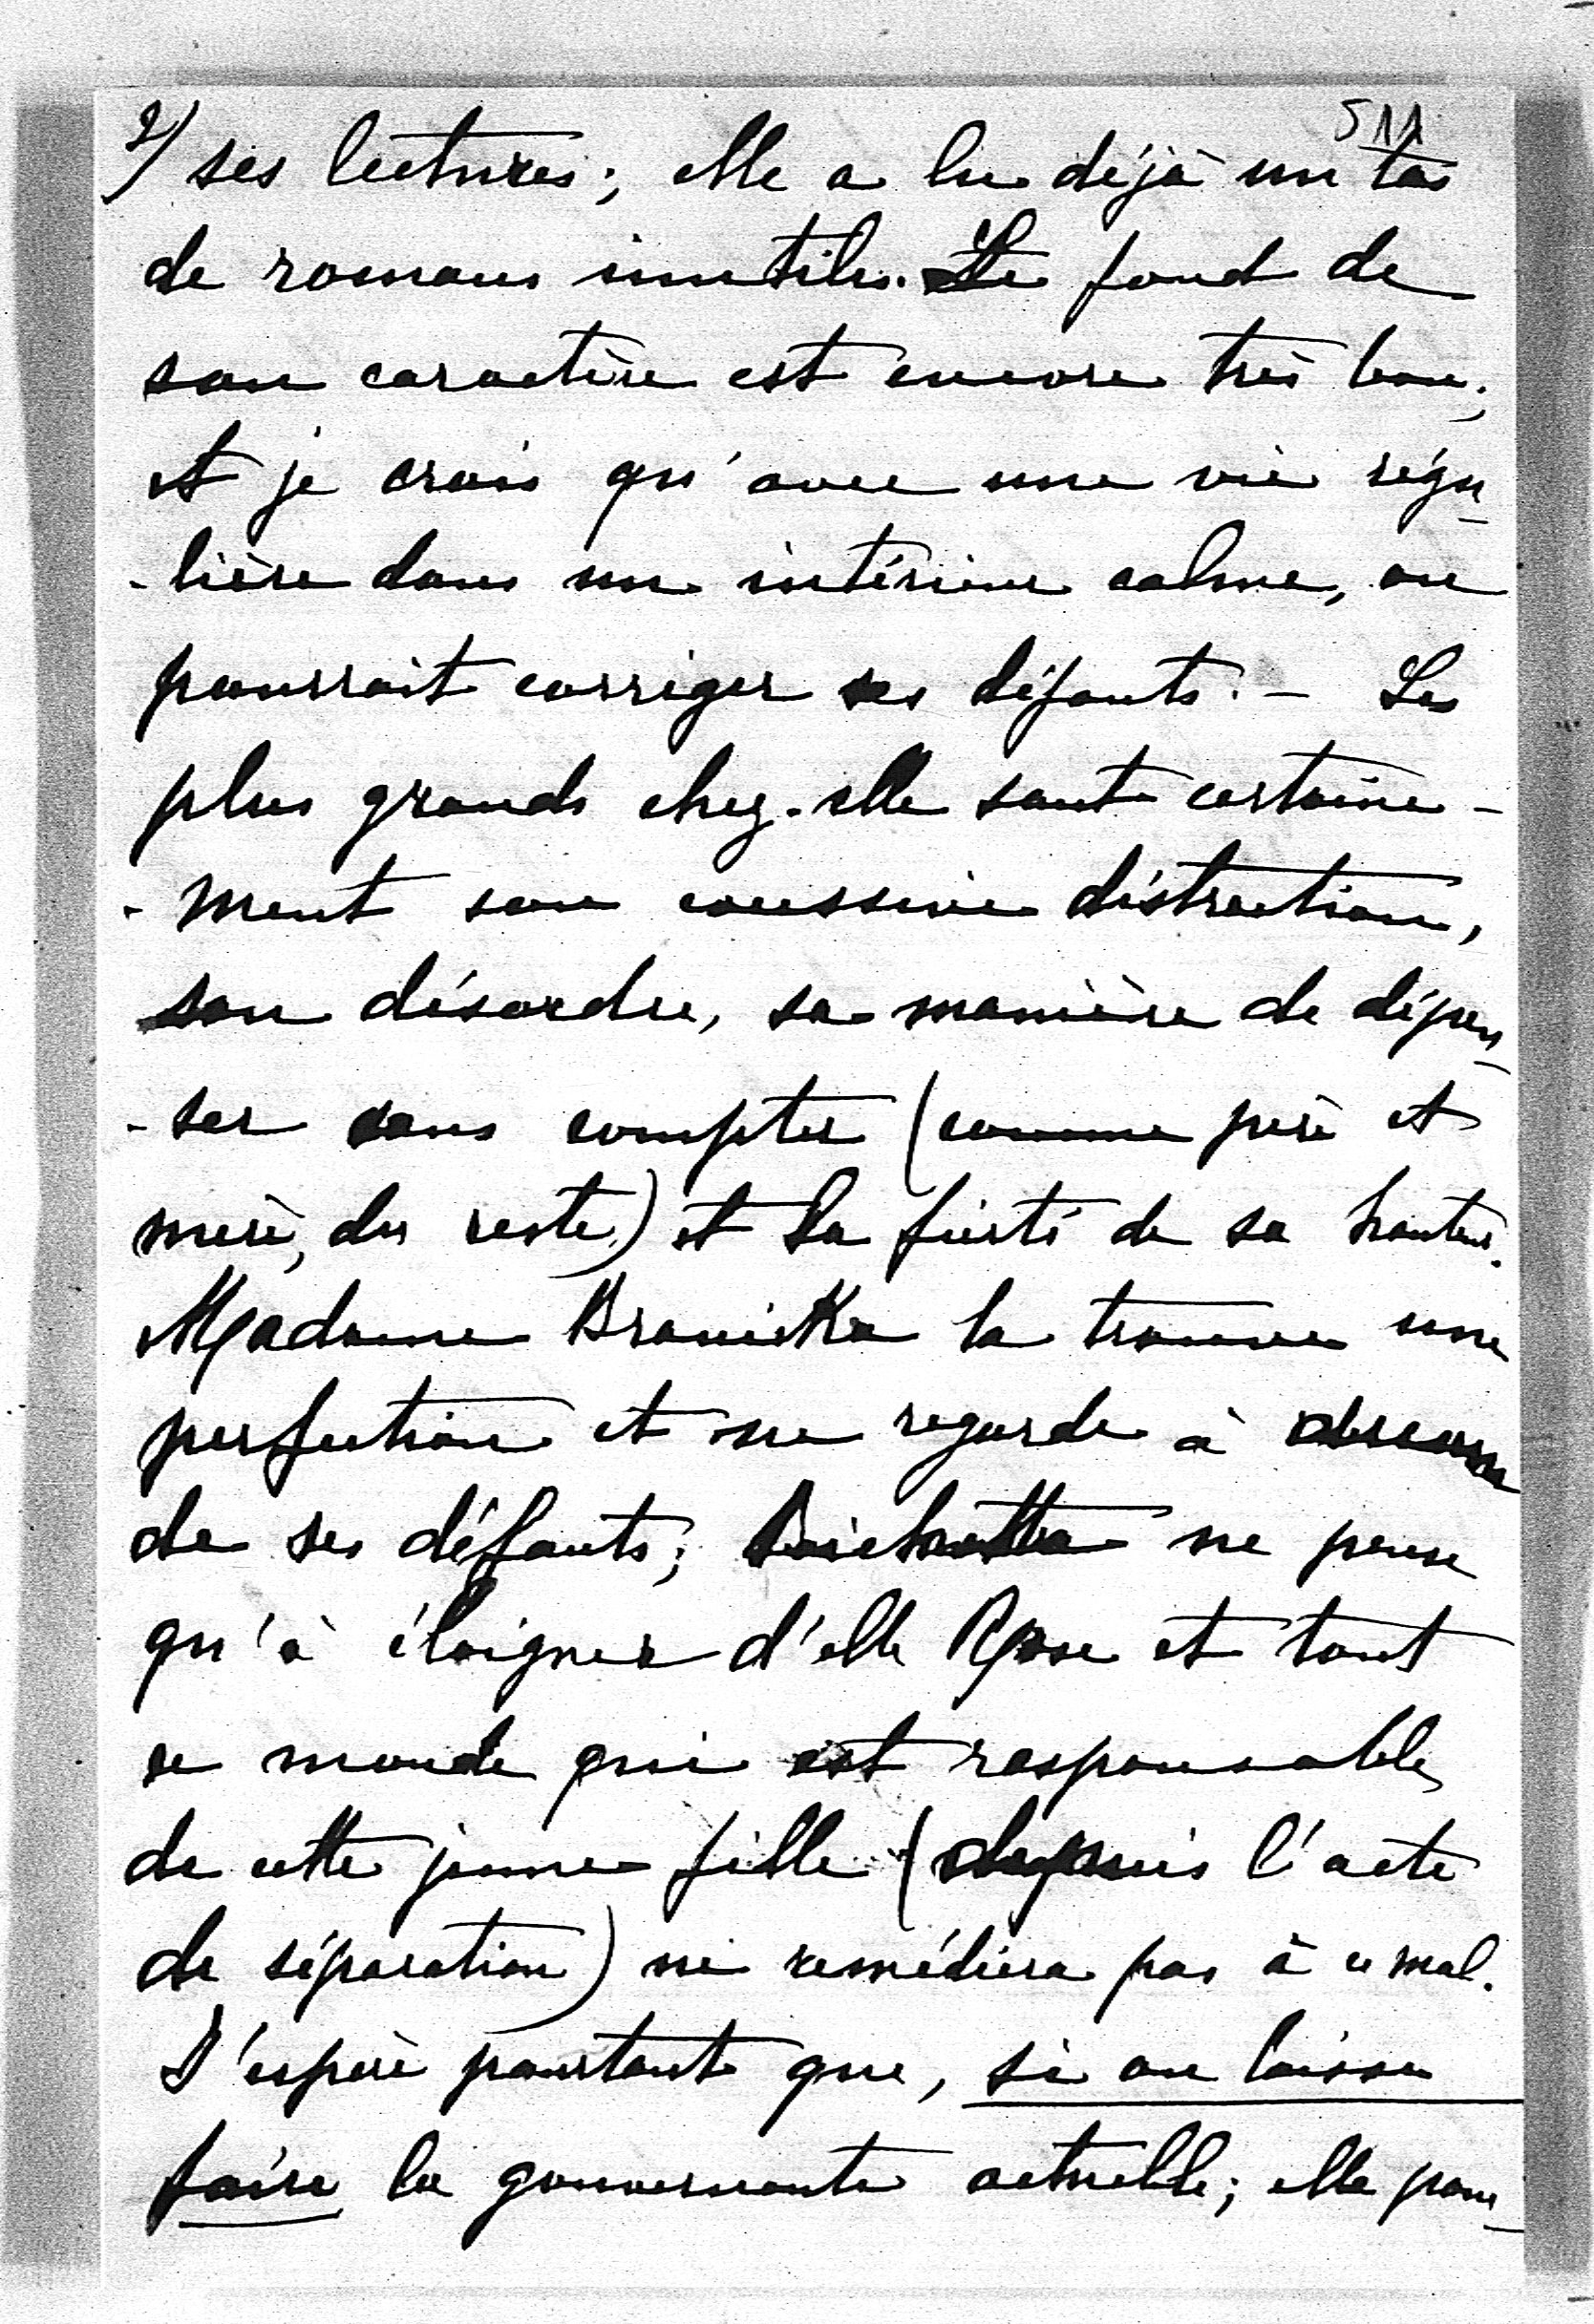 511
2/ ses lectures; elle a lu déjà un tas
de romans inutiles. Le fond de
son caractère est encore très bon;
et je crois qu'avec une vie régu-
-lière dans un intérieur calme, on
pourrait corriger ses défauts. - Les
plus grands chez-elle sont certaine-
-ment son excessive distraction,
son désordre, sa manière de dépen-
-ser sans compter (comme père et
mère, du reste) et la fierté de sa hauteur.
Madame Branicka la trouve une
perfection et ne regarde à aucun
de ses défauts; ne pense
qu'à éloigner d'elle Rose et tout
ce monde qui est responsable
de cette jeune fille (depuis l'acte
de séparation) ne remédiera pas à ce mal.
J'espère pourtant que, si on laisse
faire la gouvernante actuelle; elle pour-